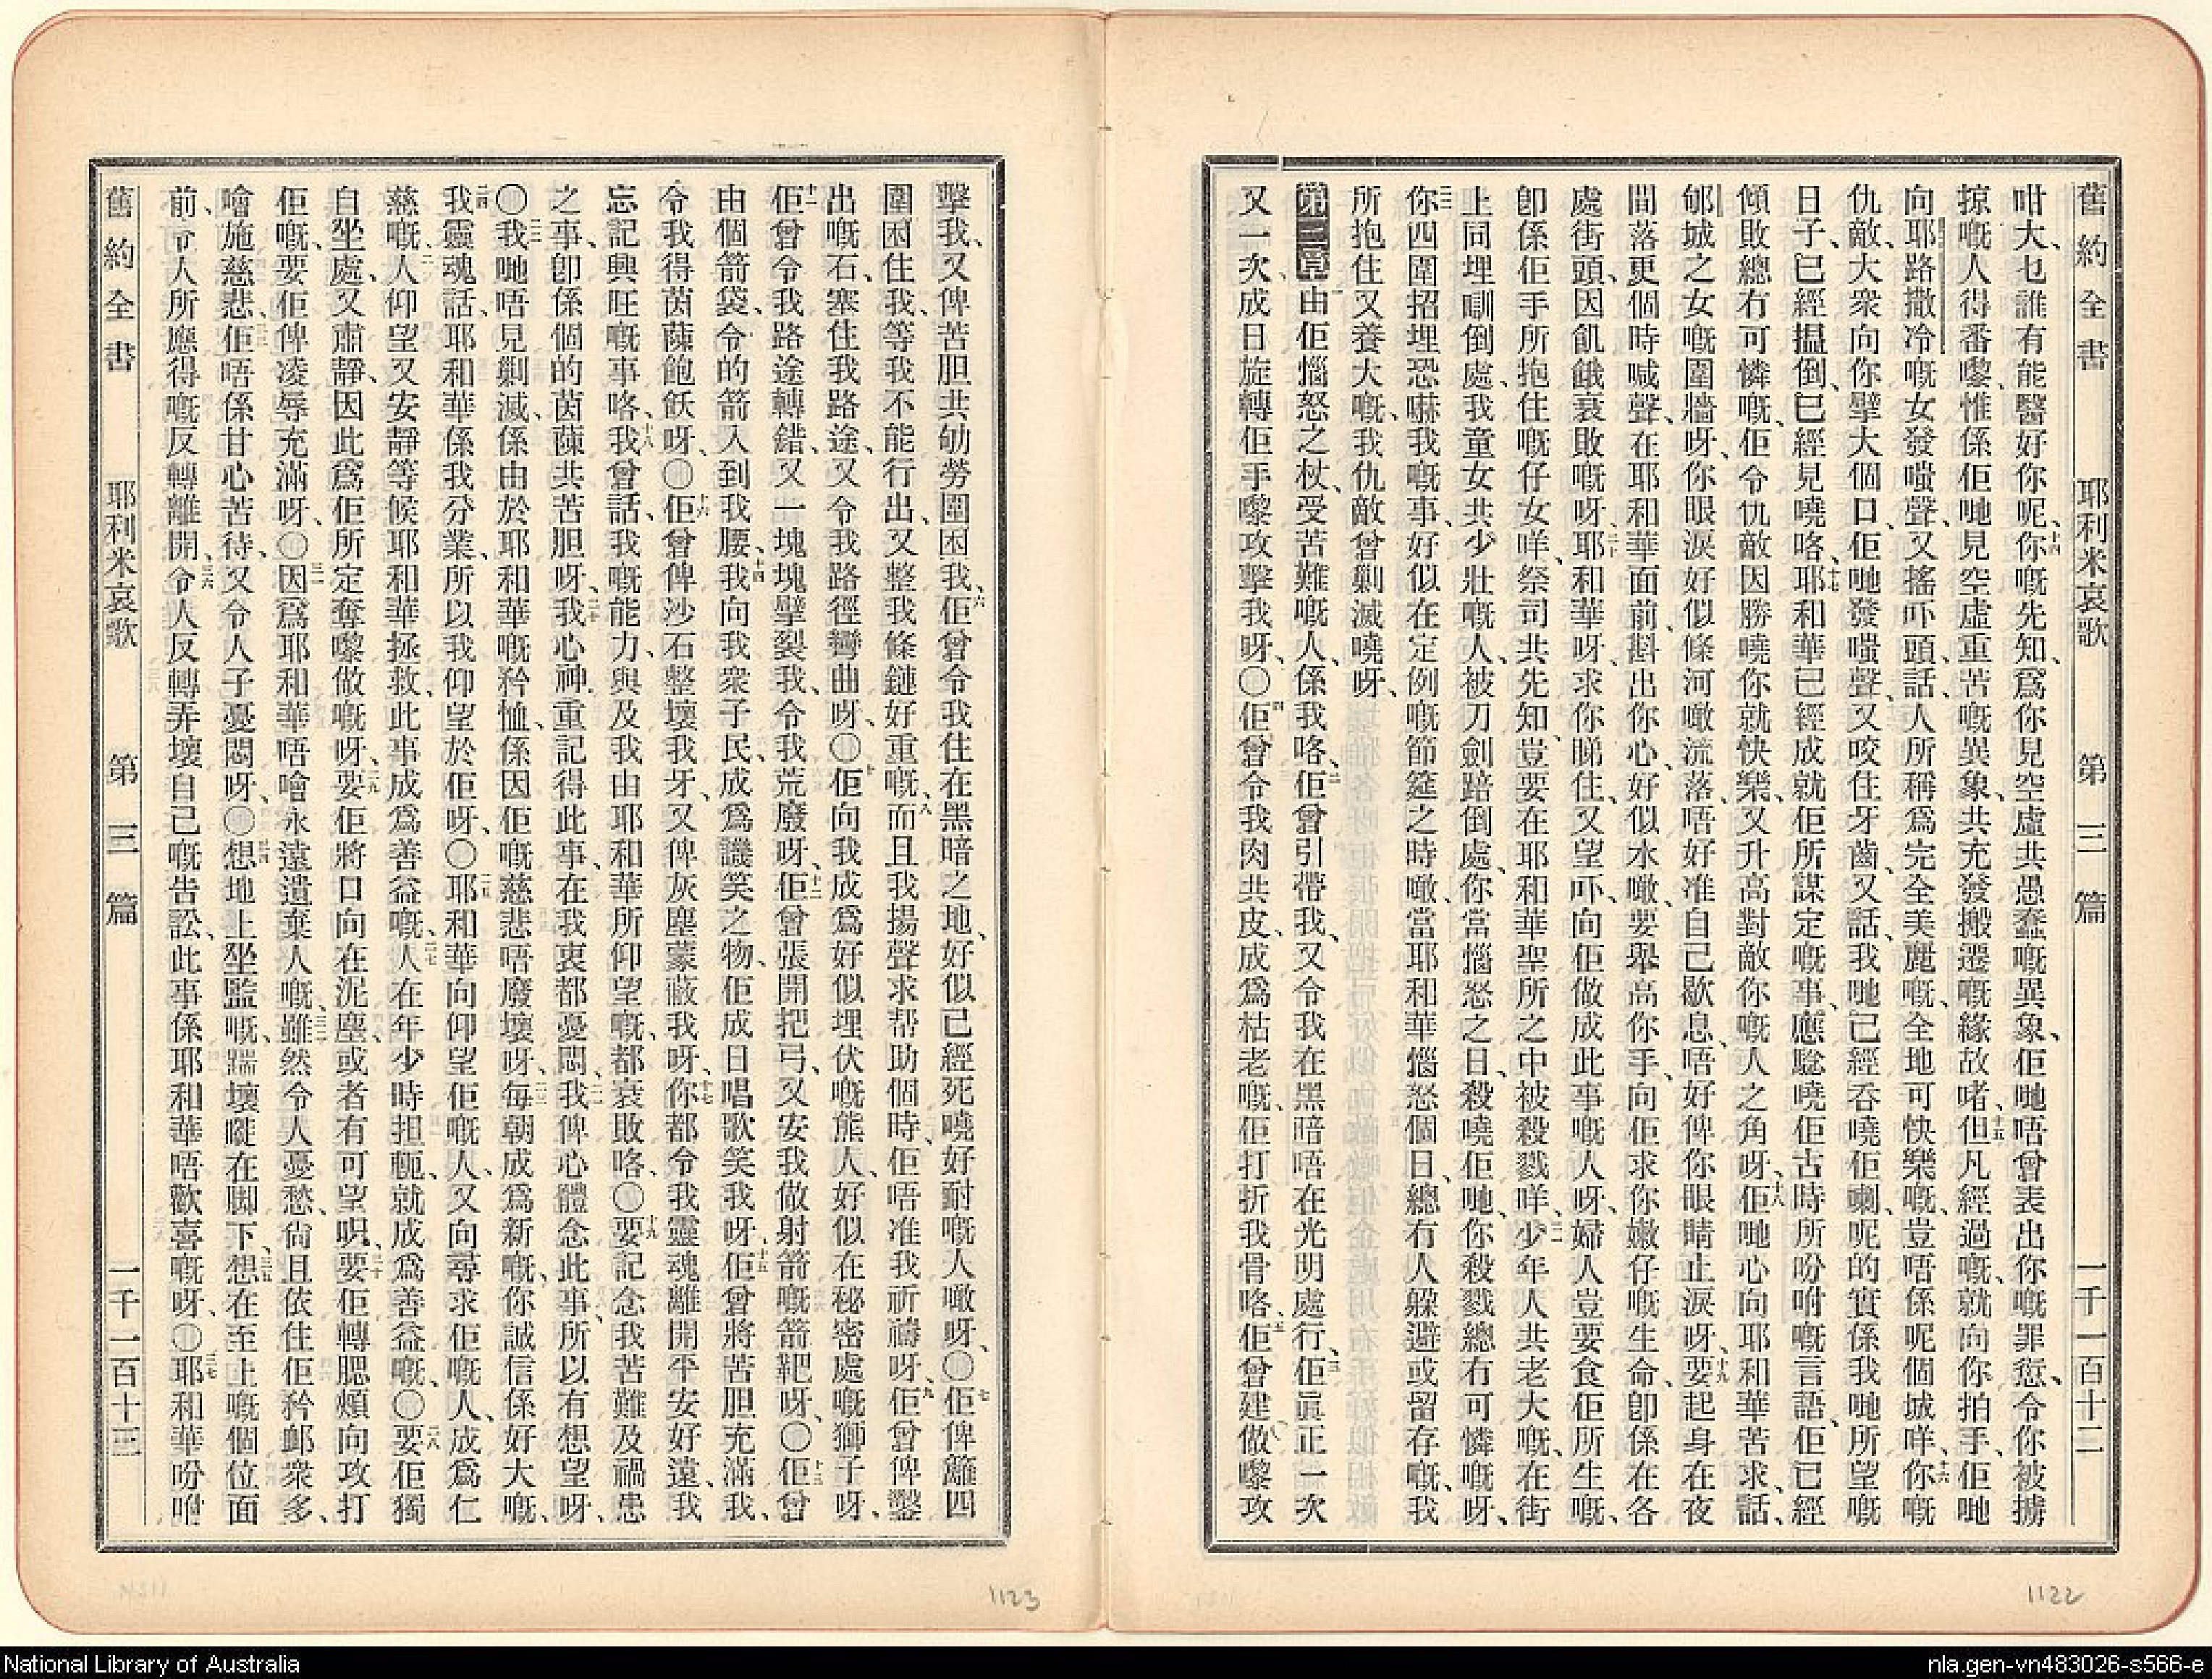 舊約全書 耶利米哀歌 第三篇 一千一百十二
咁大、乜誰有能醫好你呢、十四你嘅先知、爲你見空虛共愚蠢嘅異象、佢哋唔曾表出你嘅罪愆、令你被擄
掠嘅人得番嚟、惟係佢哋見空虛重苦嘅異象、共充發搬遷嘅緣故啫、十五但凡經過嘅、就向你拍手、佢哋
向耶路撒冷嘅女發嗤聲、又搖吓頭、話、人所稱爲完全美麗嘅、全地可快樂嘅、豈唔係呢個城咩、十六你嘅
仇敵、大衆向你擘大個口、佢哋發嗤聲、又咬住牙齒、又話、我哋已經吞嘵佢喇、呢的實係我哋所望嘅
日子、已經揾倒、已經見嘵咯、十七耶和華已經成就佢所謀定嘅事、應驗嘵佢古時所吩咐嘅言語、佢已經
傾敗總冇可憐嘅、佢令仇敵因勝嘵你就快樂、又升高對敵你嘅人之角呀、十八佢哋心向耶和華苦求、話、
郇城之女嘅圍牆呀、你眼淚好似條河噉流落、唔好准自己歇息、唔好俾你眼睛止淚呀、十九要起身在夜
間落更個時喊聲、在耶和華面前、斟出你心、好似水噉、要舉高你手、向佢求你嫩仔嘅生命、卽係在各
處街頭、因飢餓衰敗嘅呀、二十耶和華呀、求你睇住、又望吓、向佢做成此事嘅人呀、婦人豈要食佢所生嘅、
卽係佢手所抱住嘅仔女咩、祭司共先知、豈要在耶和華聖所之中被殺戮咩、二一少年人共老大嘅、在街
上同埋瞓倒處、我童女共少壯嘅人、被刀劍踣倒處、你當惱怒之日、殺嘵佢哋、你殺戮總冇可憐嘅呀、
二二你四圍招埋恐嚇我嘅事、好似在定例嘅節筵之時噉、當耶和華惱怒個日、總冇人躲避或留存嘅、我
所抱住又養大嘅、我仇敵曾剿滅嘵呀、
第三章 由佢惱怒之杖、受苦難嘅人、係我咯、二佢曾引帶我、又令我在黑暗唔在光明處行、三佢眞正一次
又一次、成日旋轉佢手嚟攻擊我呀、〇四佢曾令我肉共皮、成爲枯老嘅、佢打折我骨咯、五佢曾建做嚟攻
1122
擊我、又俾苦胆共劬勞圍困我、六佢曾令我住在黑暗之地、好似已經死嘵好耐嘅人噉呀、〇七佢俾籬四
圍困住我、等我不能行出、又整我條鏈好重嘅、八而且我揚聲求帮助個時、佢唔准我祈禱呀、九佢曾俾鑿
出嘅石、塞住我路途、又令我路徑彎曲呀、〇十佢向我成爲好似埋伏嘅熊人、好似在秘密處嘅獅子呀、
十一佢曾令我路途轉錯、又一塊塊擘裂我、令我荒廢呀、十二佢曾張開把弓、又安我做射箭嘅箭靶呀、〇十三佢曾
由個箭袋、令的箭入到我腰、十四我向我衆子民、成爲譏笑之物、佢成日唱歌笑我呀、十五佢曾將苦胆充滿我、
令我得茵蔯飽飫呀、〇十六佢曾俾沙石整壞我牙、又俾灰塵蒙蔽我呀、十七你都令我靈魂離開平安好遠、我
忘記興旺嘅事咯、十八我曾話、我嘅能力、與及我由耶和華所仰望嘅、都衰敗咯、〇十九要記念我苦難及禍患
之事、卽係個的茵蔯共苦胆呀、二十我心神重記得此事、在我衷都憂悶、二一我俾心體念此事、所以有想望呀、
〇二二我哋唔見剿滅、係由於耶和華嘅矜恤、係因佢嘅慈悲唔廢壞呀、二三每朝成爲新嘅、你誠信係好大嘅、
二四我靈魂話、耶和華係我分業、所以我仰望於佢呀、〇二五耶和華向仰望佢嘅人、又向尋求佢嘅人、成爲仁
慈嘅、二六人仰望又安靜等候耶和華拯救、此事成爲善益嘅、二七人在年少時担軛、就成爲善益嘅、〇二八要佢獨
自坐處、又肅靜、因此爲佢所定奪嚟做嘅呀、二九要佢將口向在泥塵、或者有可望唄、三十要佢轉腮頰向攻打
佢嘅、要佢俾凌辱充滿呀、〇三一因爲耶和華唔噲永遠遺棄人嘅、三二雖然令人憂愁、尚且依住佢矜卹衆多、
噲施慈悲、三三佢唔係甘心苦待、又令人子憂悶呀、〇三四想地上坐監嘅、踹壞嚹在脚下、三五想在至上嘅個位面
前、令人所應得嘅反轉離開、三六令人反轉弄壞自己嘅告訟、此事係耶和華唔歡喜嘅呀、〇三七耶和華吩咐
舊約全書 耶利米哀歌 第三篇 一千一百十三
1123
National Library of Australia
nla.gen-vn483026-s566-e